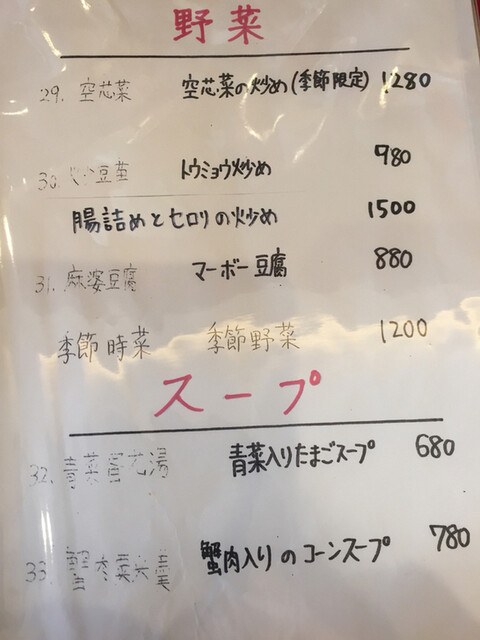 野菜
29. 空芯菜 空芯菜の炒め(季節限定) 1280
30. 豆苗 トウミョウ炒め 980
腸詰めとセロリの炒め 1500
31. 麻婆豆腐 マーボー豆腐 880
季節時菜 季節野菜 1200
スープ
32. 青菜 湯 青菜入りたまごスープ 680
33. 蟹肉入りのコーンスープ 780